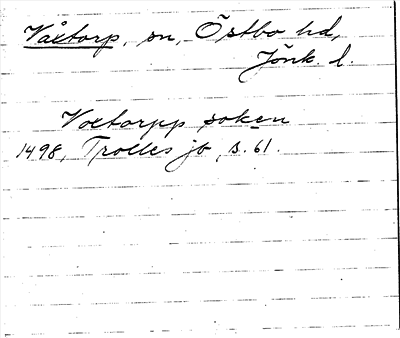 Våxtorp, sn, Östbo hd,
Jönk. l.
Voxtorpp soken
1498, Trolles jb, s. 61.